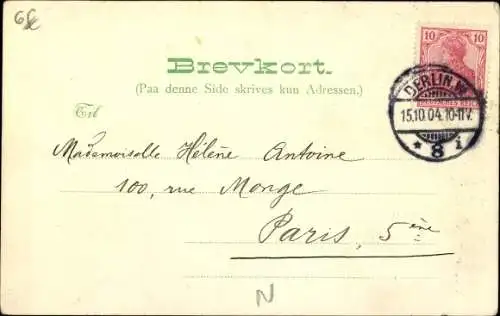 10 10
BERLIN W.
15.10.04.10-11V.
* 8 i
Brevkort.
(Paa denne Side skrives kun Adressen.)
Til
Mademoiselle Hélène Antoine
100, rue Monge
Paris, 5ème
N